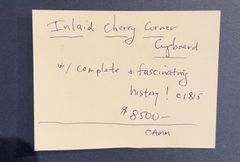 Inlaid Cherry Corner
Cupboard
w/ complete & fascinating
history! c1815
$8500-